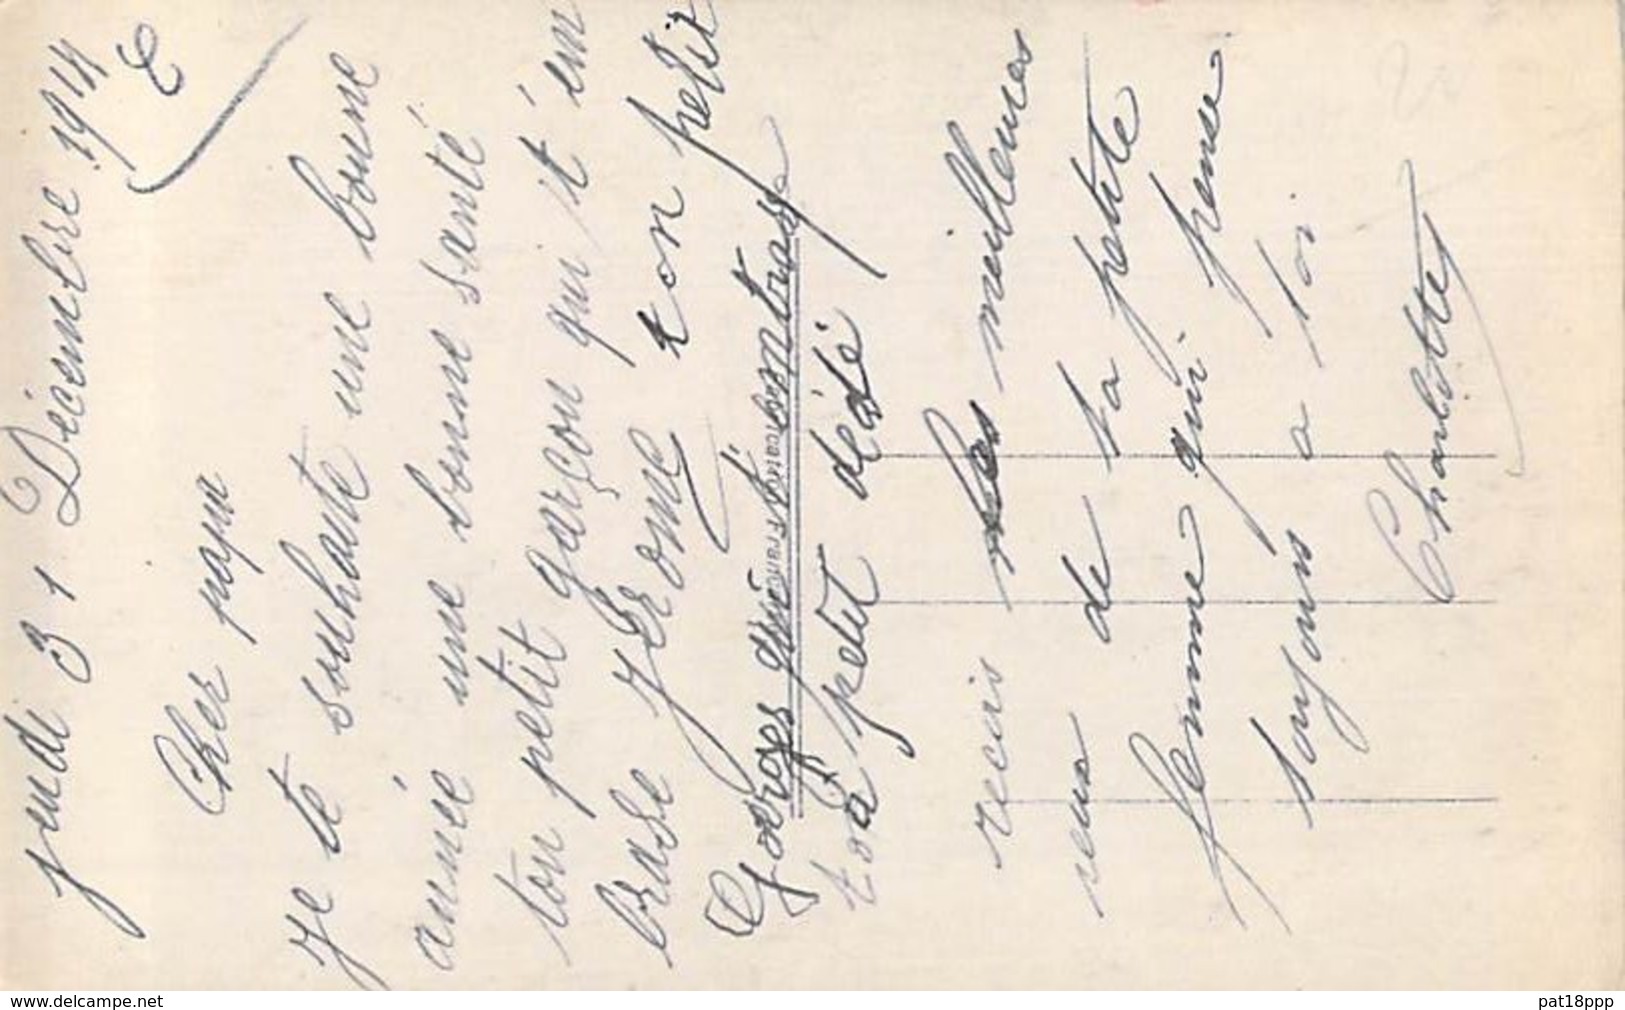 jeudi 31 Décembre 1914
Cher papa
Je te souhaite une bonne
année une bonne santé
ton petit garçon qui t'em
brase Jérome ton petit
Gorges
ton petit dédé
recois les meilleures
veux de ta petite
femme qui pense
toujours a toi
Charlotte
www.delcampe.net
pat18ppp